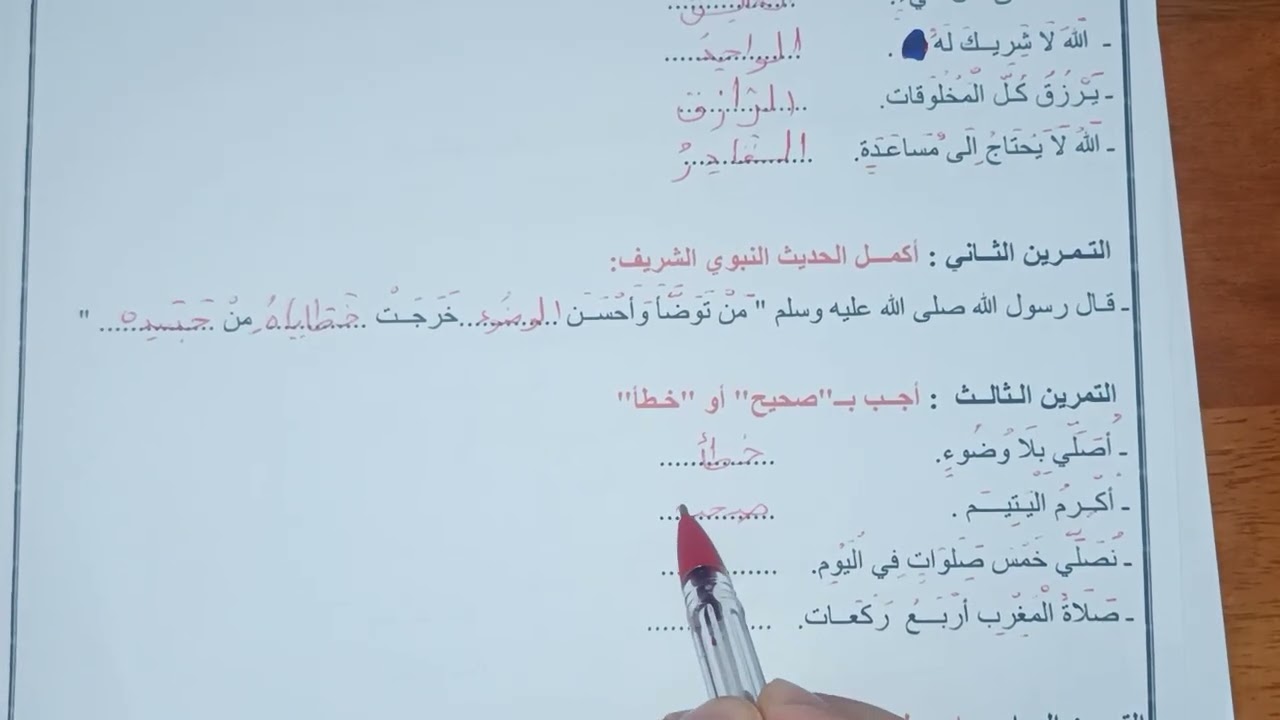 - اللهَ لَا شَرِيـكَ لَهُ . الواحِدُ
- يَرْزُقُ كُلَّ الْمَخْلُوقات. الرَّازِقُ
- اللهُ لَا يَحْتَاجُ إِلَى مُسَاعَدَةٍ. القادِرُ
التـمـرين الثـاني : أكمـل الحديث النبوي الشريف:
- قـال رسول الله صلى الله عليه وسلم " مَنْ تَوَضَّأَ وَأَحْسَـنَ الوضُوء خَرَجَـتْ خَطَايَاهُ مِنْ جَسَدِهِ "
التمرين الـثالـث : أجـب بـ"صحيح" أو "خطأ"
- أُصَلِّي بِلَا وُضُوءٍ. خطأ
- أُكْـرِمُ الْيَتِيـمَ .
- نُصَلِّي خَمْسَ صَلَوَاتٍ فِي الْيَوْمِ.
- صَلَاةُ الْمَغْرِبِ أَرْبَـعُ رَكَعَـات.